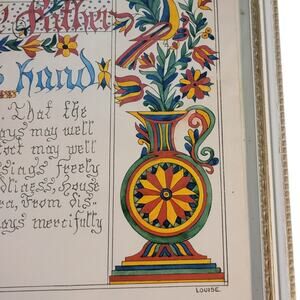 Father
hand
. That the
ays may well
tock may well
sings freely
dliness, House
ra, from dis-
ays mercifully
LOUISE